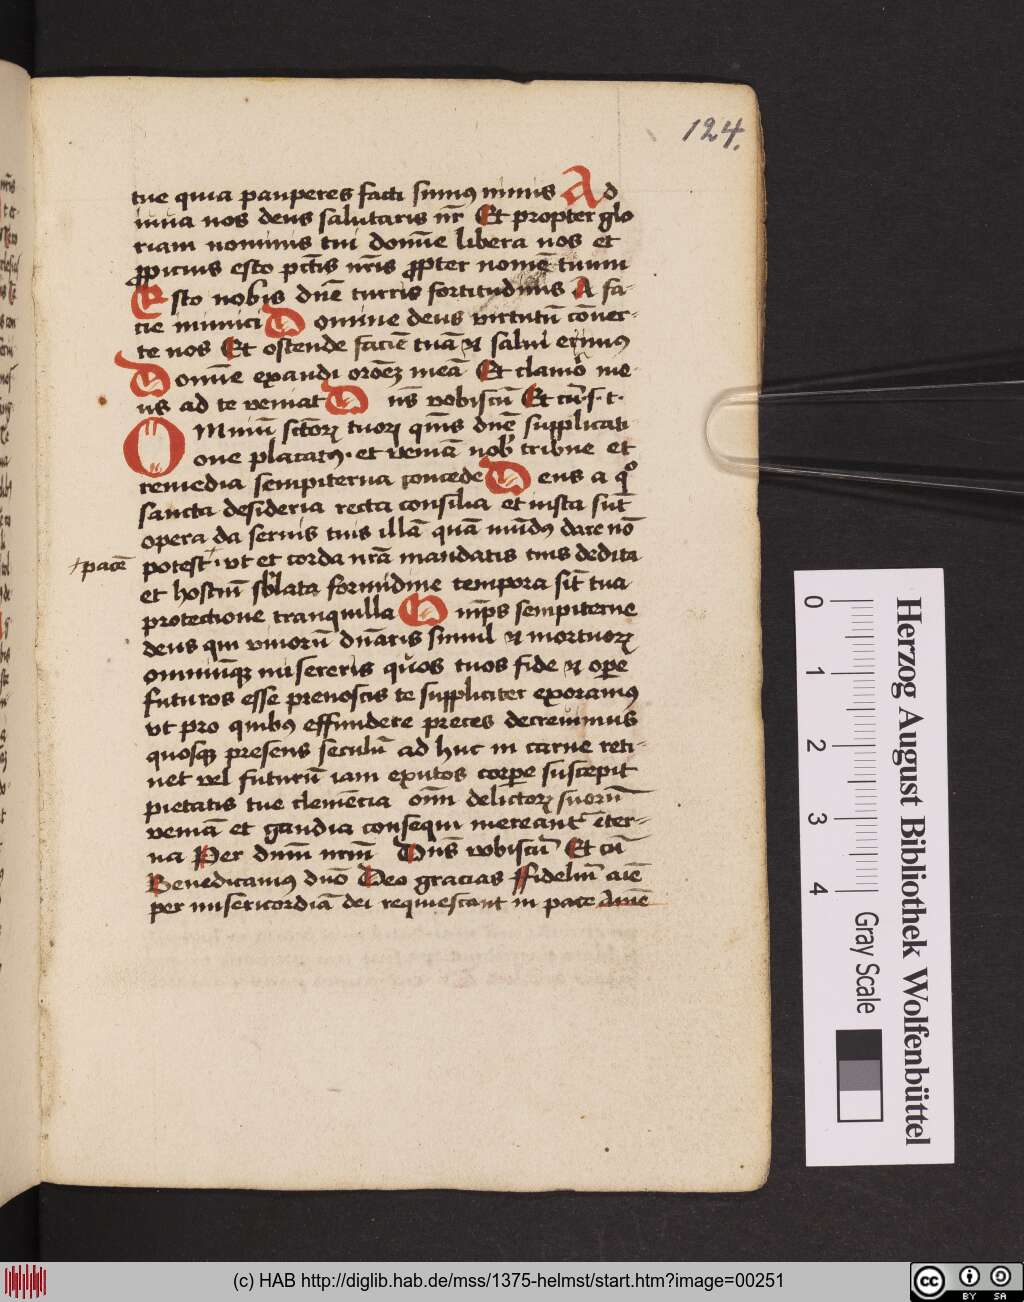 124.
tue quia pauperes facti sumus nimis Ad
iuua nos deus salutaris nr̄ Et propter glo
riam nominis tui domīe libera nos et
ꝓpicius esto pctīs nr̄is ꝓpter nomē tuum
Esto nobis dn̄e turris fortitudinis A fa-
cie inimici Domine deus virtutū cōuer-
te nos Et ostende faciē tuā ⁊ salui erimꝰ
Domīe exaudi orōeꝫ meā Et clamō me-
us ad te veniat Dn̄s vobiscū Et cū s· t·
Omniū sctōrꝝ tuorꝝ qm̄s dn̄e supplicati
one placatꝰ· et veniā nob̓ tribue et
remedia sempiterna concede Deus a qͦ
sancta desideria recta consilia et iusta sūt
opera da seruis tuis illā quā mūdꝰ dare nō
+pacē potest +· vt et corda nr̄a mandatis tuis dedita
et hostiū sb̓lata formidine tempora sīt tua
protectione tranquilla Om̄ps sempiterne
deus qui viuorū dn̄aris simul ⁊ mortuorꝝ
omniūqꝫ misereris quos tuos fide ⁊ oꝑe
futuros esse prenoscis te suppliciter exoramꝰ
vt pro quibꝰ effundere preces decreuimus
quosqꝫ presens seculū ad huc in carne reti-
net vel futurū iam exutos corꝑe suscepit
pietatis tue clemēcia om̄ delictorꝝ suorū
veniā et gaudia consequi mereant̄ eter-
na Per dnm̄ nrm̄ Dn̄s vobiscū Et cū
Benedicamꝰ dn̄o Deo gracias Fideliū aīe
per misericordiā dei requiescant in pace Amē
0
1
2
3
4
Gray Scale
Herzog August Bibliothek Wolfenbüttel
(c) HAB http://diglib.hab.de/mss/1375-helmst/start.htm?image=00251
cc BY SA